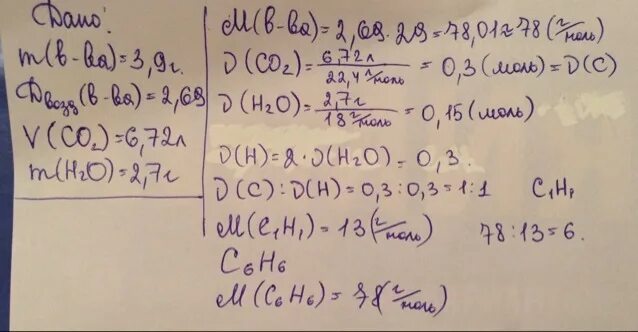 Дано:
m(в-ва)=3,9г.
Dвозд(в-ва)=2,69
V(CO2)=6,72л
m(H2O)=2,7г
M(в-ва)=2,69·29=78,01≈78(г/моль)
υ(CO2)=6,72л/22,4г/моль=0,3(моль)=υ(C)
υ(H2O)=2,7г/18г/моль=0,15(моль)
υ(H)=2·υ(H2O)=0,3.
υ(C):υ(H)=0,3:0,3=1:1 C1H1
M(C1H1)=13(г/моль) 78:13=6.
C6H6
M(C6H6)=78(г/моль)